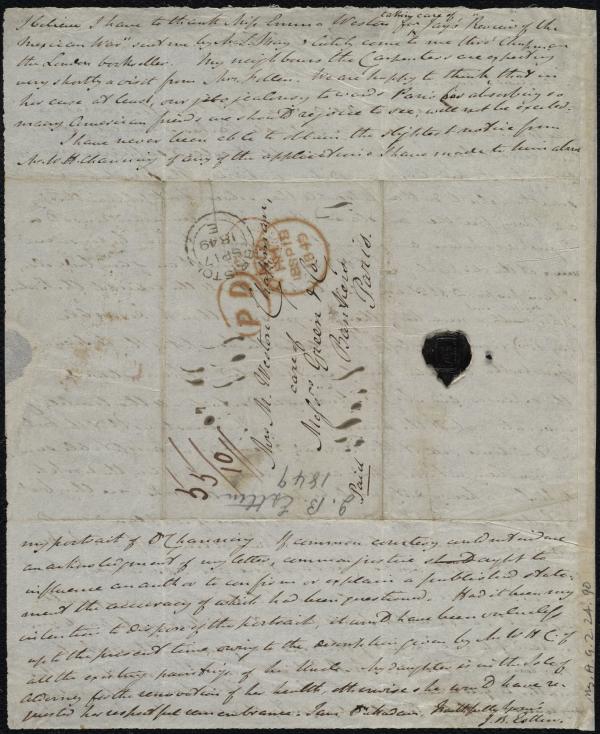 I believe I have to thank Miss Emma Weston for taking care of Jay's "Review of the
Mexican War" sent me by Mr. May & lately come to me thro' Chapman
the London bookseller. My neighbours the Carpenters are expecting
very shortly a visit from Mrs. Follen. We are happy to think that in
her case at least, our jealousy towards Paris for absorbing so
many American friends we should rejoice to see, will not be excited.
I have never been able to obtain the slightest notice from
Mr. W. H. Channing of any of the applications I have made to him about
BRISTOL
SP 17
1849
E
PD
18 SP 18
1849
Mrs. M. Weston Chapman,
care of
Messrs. Green & Co.
Bankers,
Paris.
Paid
55/
10//
J. B. Estlin
1849
my portrait of Dr. Channing. If common courtesy could not induce
an acknowledgment of my letter, common justice ought to
influence an author to confirm or explain a published state-
ment the accuracy of which had been questioned. Had it been my
intention to dispose of the portrait, it would have been valueless
up to the present time, owing to the description given by Mr. W. H. C. of
all the existing paintings of his Uncle. My daughter is in the Isle of
Alderney for the renovation of her health, otherwise she would have re-
quested her respectful remembrance. I am Dr. Madam, Faithfully yours
J. B. Estlin.
Ms. A. 9. 2. 24. 90